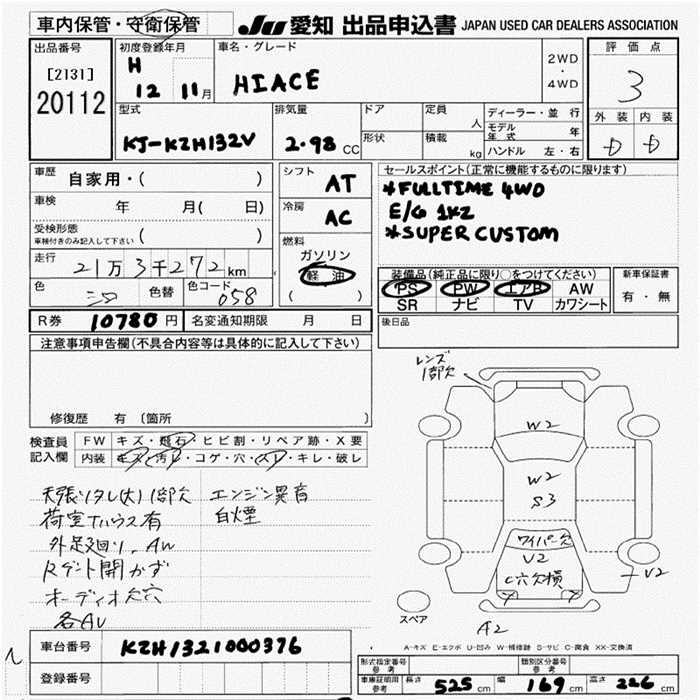 車内保管・守衛保管
JU 愛知 出品申込書 JAPAN USED CAR DEALERS ASSOCIATION
出品番号
[2131]
20112
初度登録年月
H
12 11月
車名・グレード
HIACE
2WD
・
4WD
評価点
3
外装 内装
D D
型式
KJ-KZH132V
排気量
2.98 CC
ドア
形状
定員 人
積載 kg
ディーラー・並行
モデル年式 年
ハンドル 左・右
車歴 自家用・( )
車検 年 月( 日)
受検形態
車検付きのみ記入して下さい ( )
走行
21万3千272km
色
色替
色コード 058
シフト
AT
冷房
AC
燃料
ガソリン
軽油
( )
セールスポイント(正常に機能するものに限ります)
*FULLTIME 4WD
E/G 1KZ
*SUPER CUSTOM
装備品(純正品に限り○をつけてください)
PS PW エアB AW
SR ナビ TV カワシート
新車保証書
有・無
R券 10780円 名変通知期限 月 日
後日品
注意事項申告欄(不具合内容等は具体的に記入して下さい)
修復歴 有 (箇所
検査員
記入欄
FW キズ・飛石・ヒビ割・リペア跡・X要
内装 キズ・汚レ・コゲ・穴・スレ・キレ・破レ
エンジン異音
白煙
外足廻り、AW
オーディオ欠穴
各AU
レンズ
1部欠
W2
W2
S3
ワイパー欠
U2
C穴欠損
U2
A2
スペア
A-キズ E-エクボ U-凹み W-補修跡 S-サビ C-腐食 XX-交換済
車台番号 KZH1321000376
登録番号
型式指定番号
参考
類別区分番号
参考
車庫証明用
参考
長さ 525cm 幅 169cm 高さ 226cm